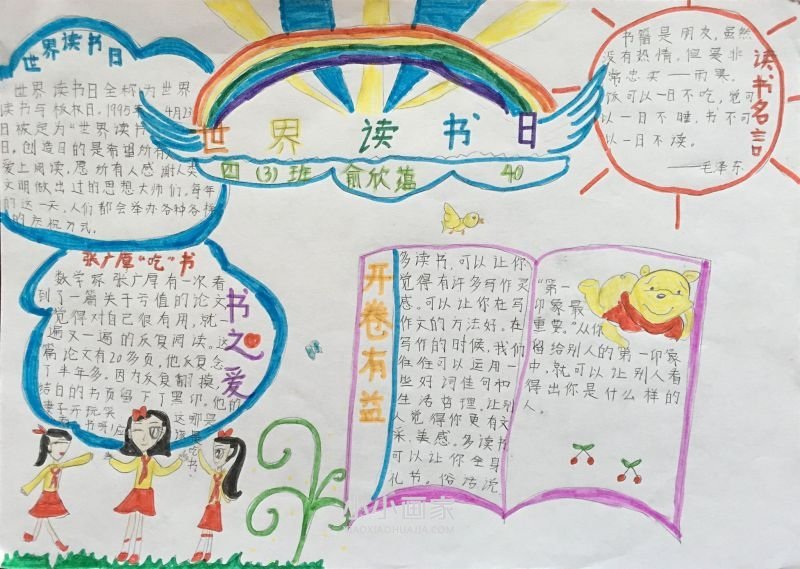 世界读书日
世界读书日全称为世界
读书与版权日。1995年 4月23
日被定为“世界读书
日,创造目的是希望所有
爱上阅读,愿所有人感谢人类
文明做出过的思想大师们,每年
的这一天,人们都会举办各种各样
的庆祝方式。
世界 读书日
四(3)班 俞欣蕴 40
读书名言
书籍是朋友,虽然
没有热情,但是非
常忠实一雨寒。
饭可以一日不吃,觉可
以一日不睡,书不可
以一日不读。
——毛泽东
张广厚“吃”书
书之爱
数学家张广厚有一次看
到了一篇关于亏值的论文
觉得对自己很有用,就一
遍又一遍的反复阅读。这
篇论文有20多页,他反复念
了半年多。因为反复翻摸
洁白的书页留下了黑印,他的
妻子开玩笑
这哪是
吃书
开卷有益
多读书,可以让你
觉得有许多写作灵
感。可以让你在写
作文的方法好。在
写作的时候,我们
往往可以运用一
些好词佳句和
生活哲理。让别
人觉得你更有文
采,美感。多读书
可以让你全身
礼节。俗话说
“第一
印象最
重要。”从你
留给别人的第一印象
中,就可以让别人看
得出你是什么样的
人。
小小画家
XIAOXIAOHUAJIA.COM